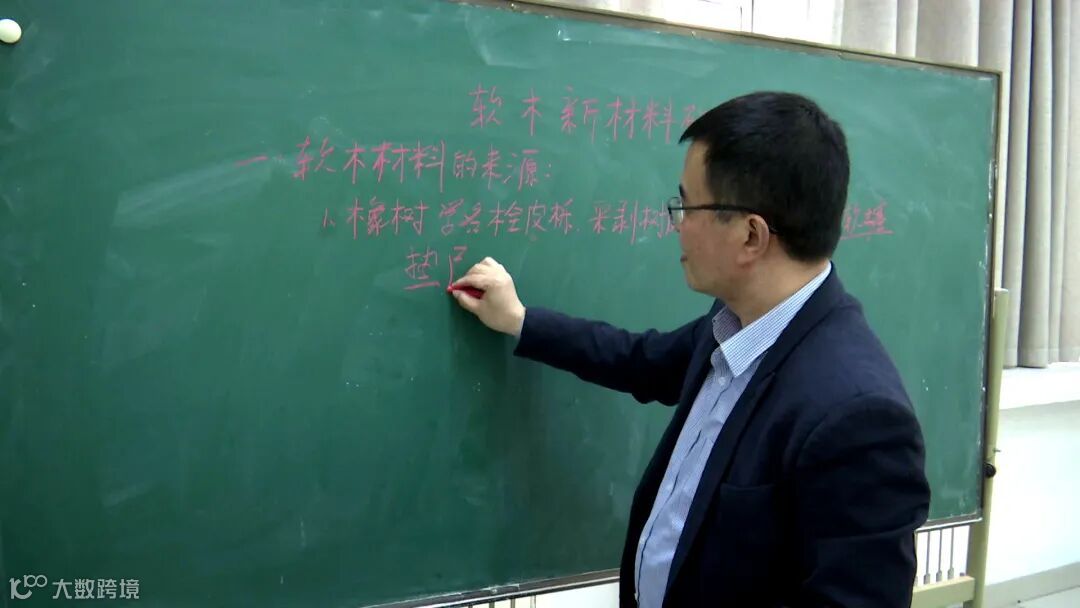 软木新材料
一 软木材料的来源：
1、橡树 学名栓皮栎. 采剥树 软木
垫
大数跨境